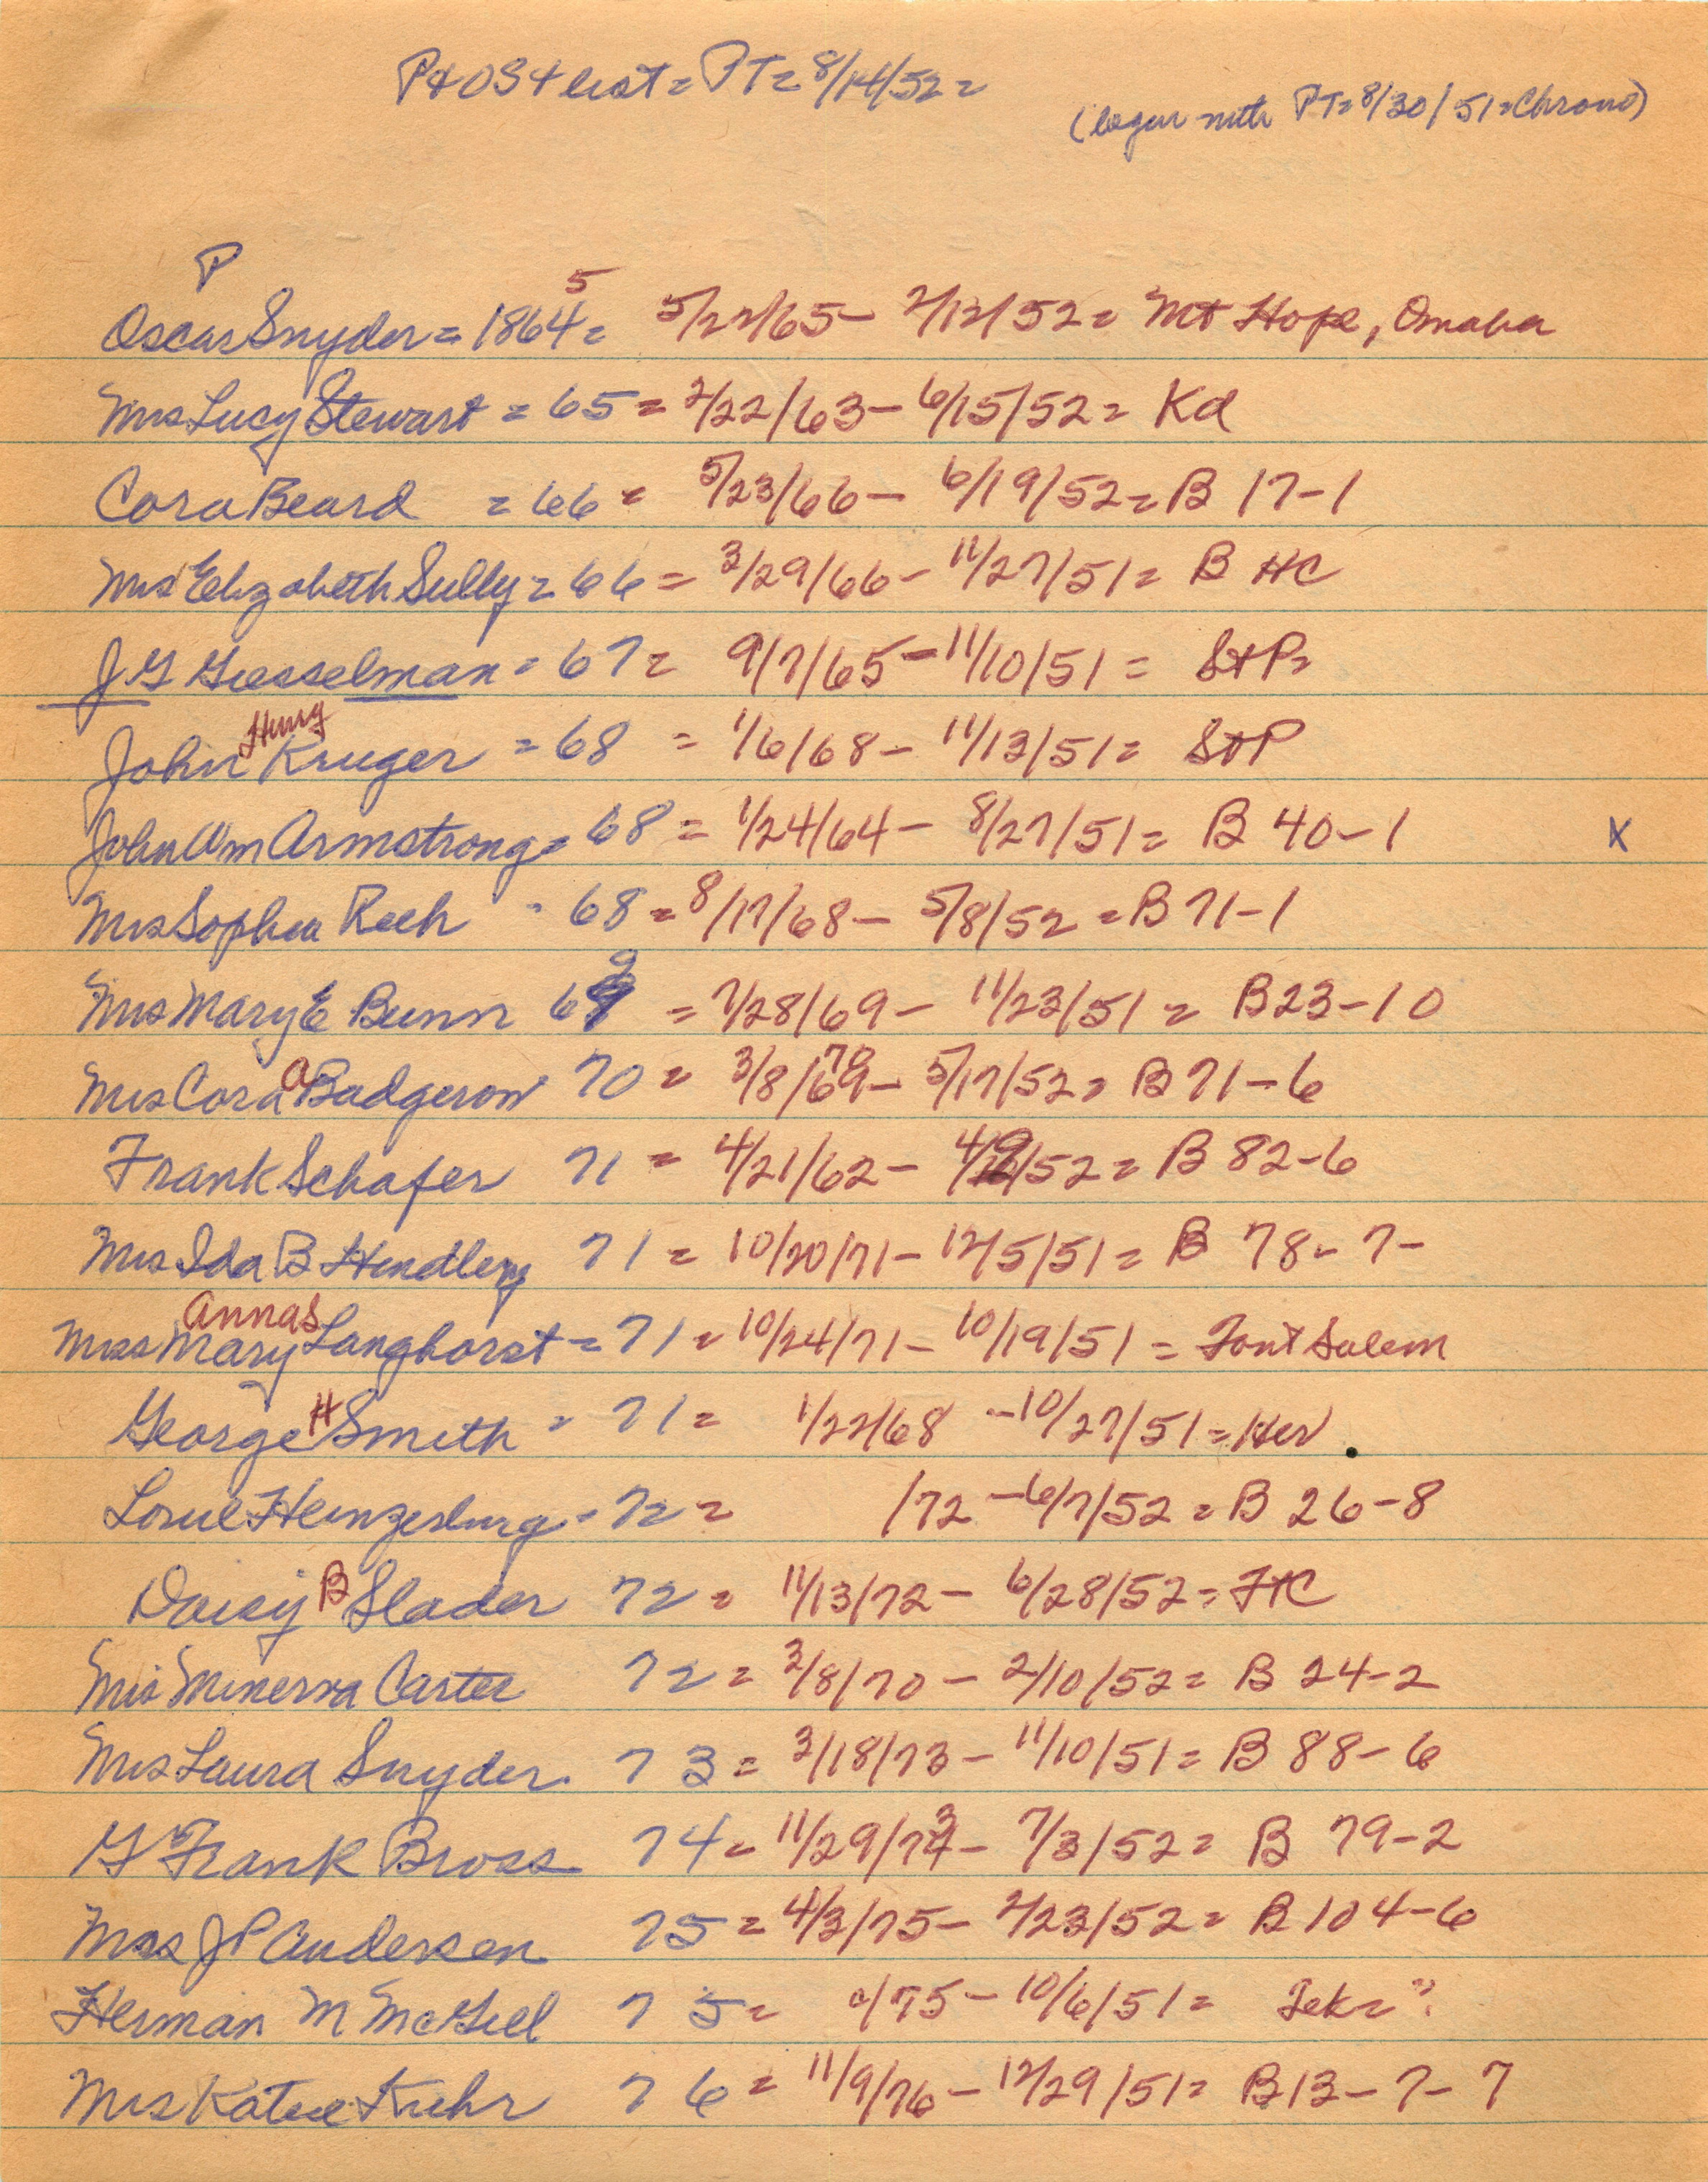 P & OS + list = PT = 8/14/52 =
(began with PT = 8/30/51 = Chrono)
P
Oscar Snyder = 1864 5 = 5/22/65 - 2/12/52 = Mt Hope, Omaha
Mrs Lucy Stewart = 65 = 2/22/63 - 6/15/52 = Kd
Cora Beard = 66 = 5/23/66 - 6/19/52 = B 17-1
Mrs Elizabeth Sully = 66 = 3/29/66 - 11/27/51 = B HC
J G Giesselman = 67 = 9/7/65 - 11/10/51 = St P =
John Henry Kruger = 68 = 1/6/68 - 11/13/51 = St P
John Wm Armstrong = 68 = 1/24/64 - 8/27/51 = B 40-1 X
Mrs Sophia Reeh = 68 = 8/17/68 - 5/8/52 = B 71-1
Mrs Mary E Bunn 69 = 7/28/69 - 11/23/51 = B 23-10
Mrs Cora A Badgerow 70 = 3/8/69 70 - 5/17/52 = B 71-6
Frank Schafer 71 = 4/21/62 - 4/9/52 = B 82-6
Mrs Ida B Hendley 71 = 10/20/71 - 12/5/51 = B 78-7-
Anna S
Miss Mary Langhorst = 71 = 10/24/71 - 10/19/51 = Font Salem
George H Smith = 71 = 1/22/68 - 10/27/51 = Her.
Heinzerburg = 72 = /72 - 6/7/52 = B 26-8
Daisy B Slader 72 = 11/13/72 - 6/28/52 = FTC
Mrs Minerva Carter 72 = 3/8/70 - 2/10/52 = B 24-2
Mrs Laura Snyder 73 = 3/18/73 - 11/10/51 = B 88-6
G Frank Bross 74 = 11/29/74 3 - 7/3/52 = B 79-2
Mrs J P Andersen 75 = 4/3/75 - 2/23/52 = B 104-6
Herman M McGill 75 = /75 - 10/6/51 = Tek = ?
Mrs Katie Kuhr 76 = 11/9/76 - 12/29/51 = B 13-7-7